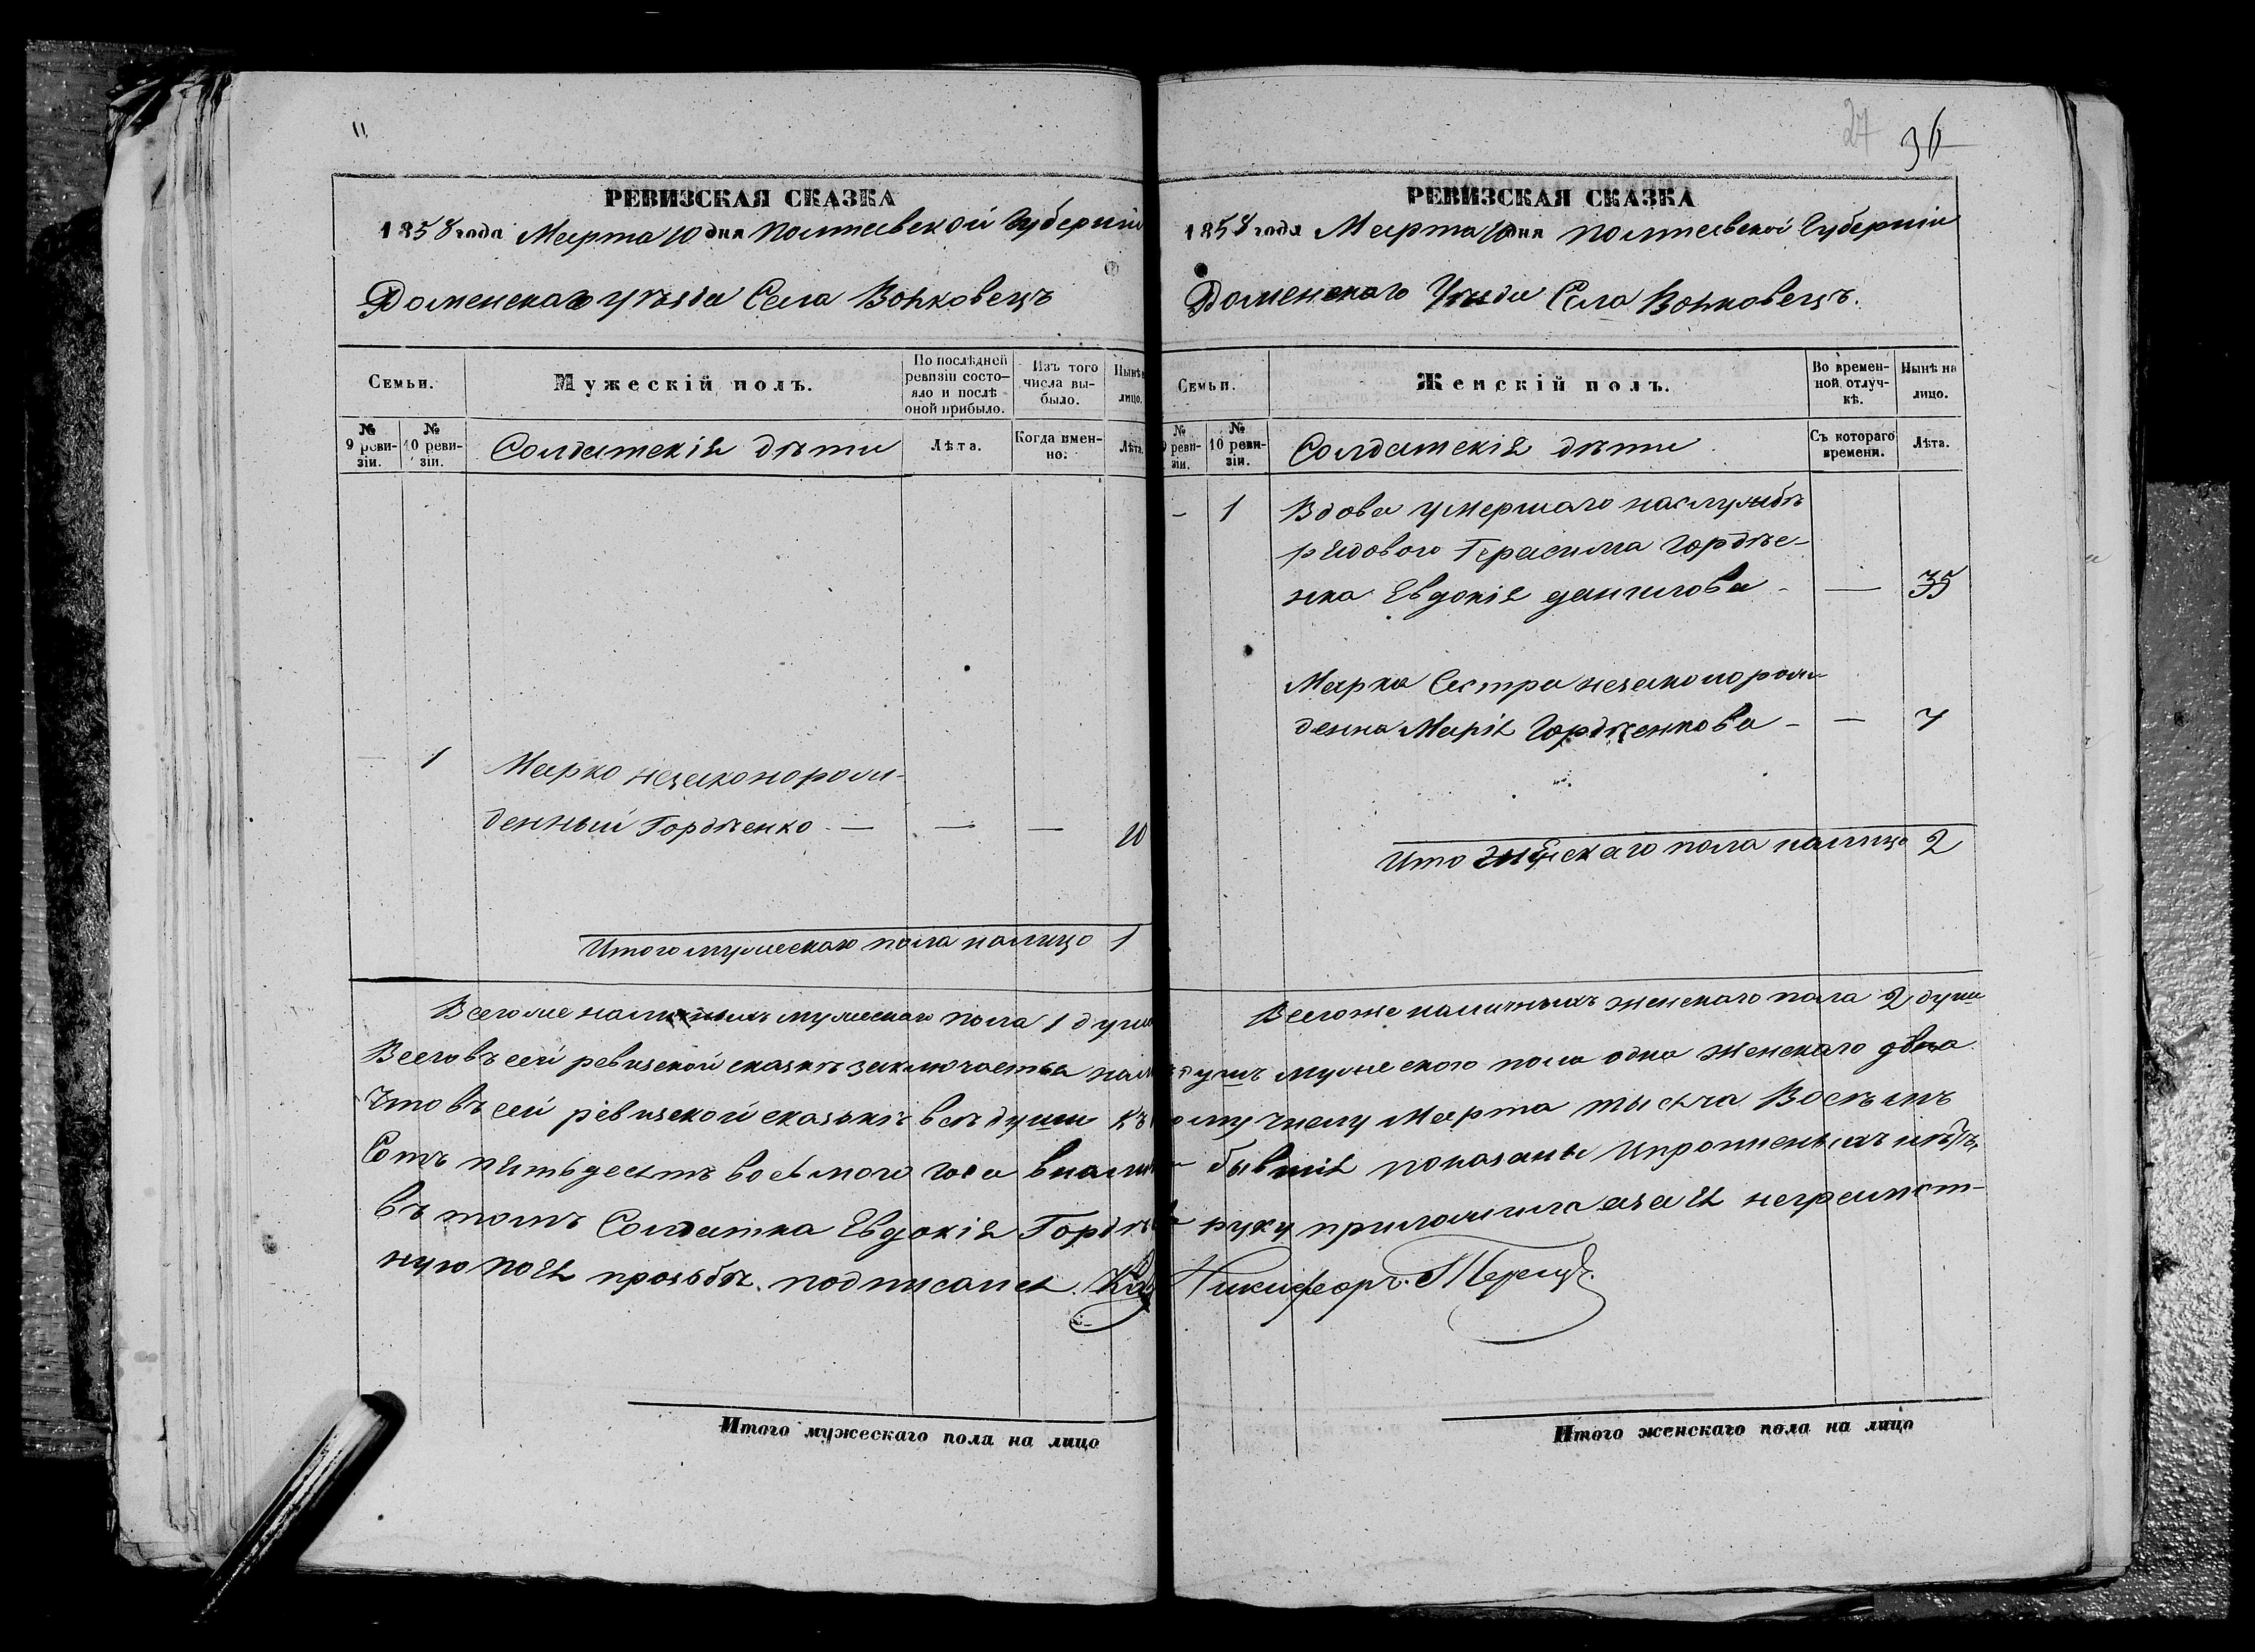 РЕВИЗСКАЯ СКАЗКА
1858 года Марта 10 дня Полтавской Губерніи
Роменскаго уѣзда Села Вовковецъ
Семьи.
Мужескій полъ.
По послѣдней ревизіи состояло и послѣ оной прибыло.
Изъ того числа выбыло.
Нынѣ лицо.
№ 9 ревизіи.
№ 10 ревизіи.
Солдатскія дѣти
Лѣта.
Когда именно.
Лѣта.
— 1 Марко незаконорож-
денный Гордѣенко — — — 10
Итого мужескаго пола налицо 1
Всего же наличныхъ мужескаго пола 1 душа
27
36
РЕВИЗСКАЯ СКАЗКА
1858 года Марта 10 дня Полтавской Губерніи
Роменскаго Уѣзда Села Вовковецъ.
Семьи.
Женскій полъ.
Во временной отлучкѣ.
Нынѣ на лицо.
№ 9 ревизіи.
№ 10 ревизіи.
Солдатскія дѣти
Съ котораго времени.
Лѣта.
— 1 Вдова умершаго наслужбѣ
рядового Герасима Гордѣе-
нка Евдокія данилова — 35
Марка Сестра незаконорож-
денна Марія Гордѣенкова — — 7
Ито женскаго пола налицо 2
Всего же наличныхъ женскаго пола 2 души
Всего въ сей ревизской сказкѣ заключается душъ мужеского пола одна женскаго два
Что въ сей ревизской сказкѣ всѣ души къ числу Марта тысяча Восемъ
Сотъ пятьдесятъ восьмого года бывшія показаны и пропиеныхъ
въ томъ Солдатка Евдокія руку приложила азаея неграмот-
ную поея прозьбѣ подписался Никифоръ
Итого мужескаго пола на лицо
Итого женскаго пола на лицо